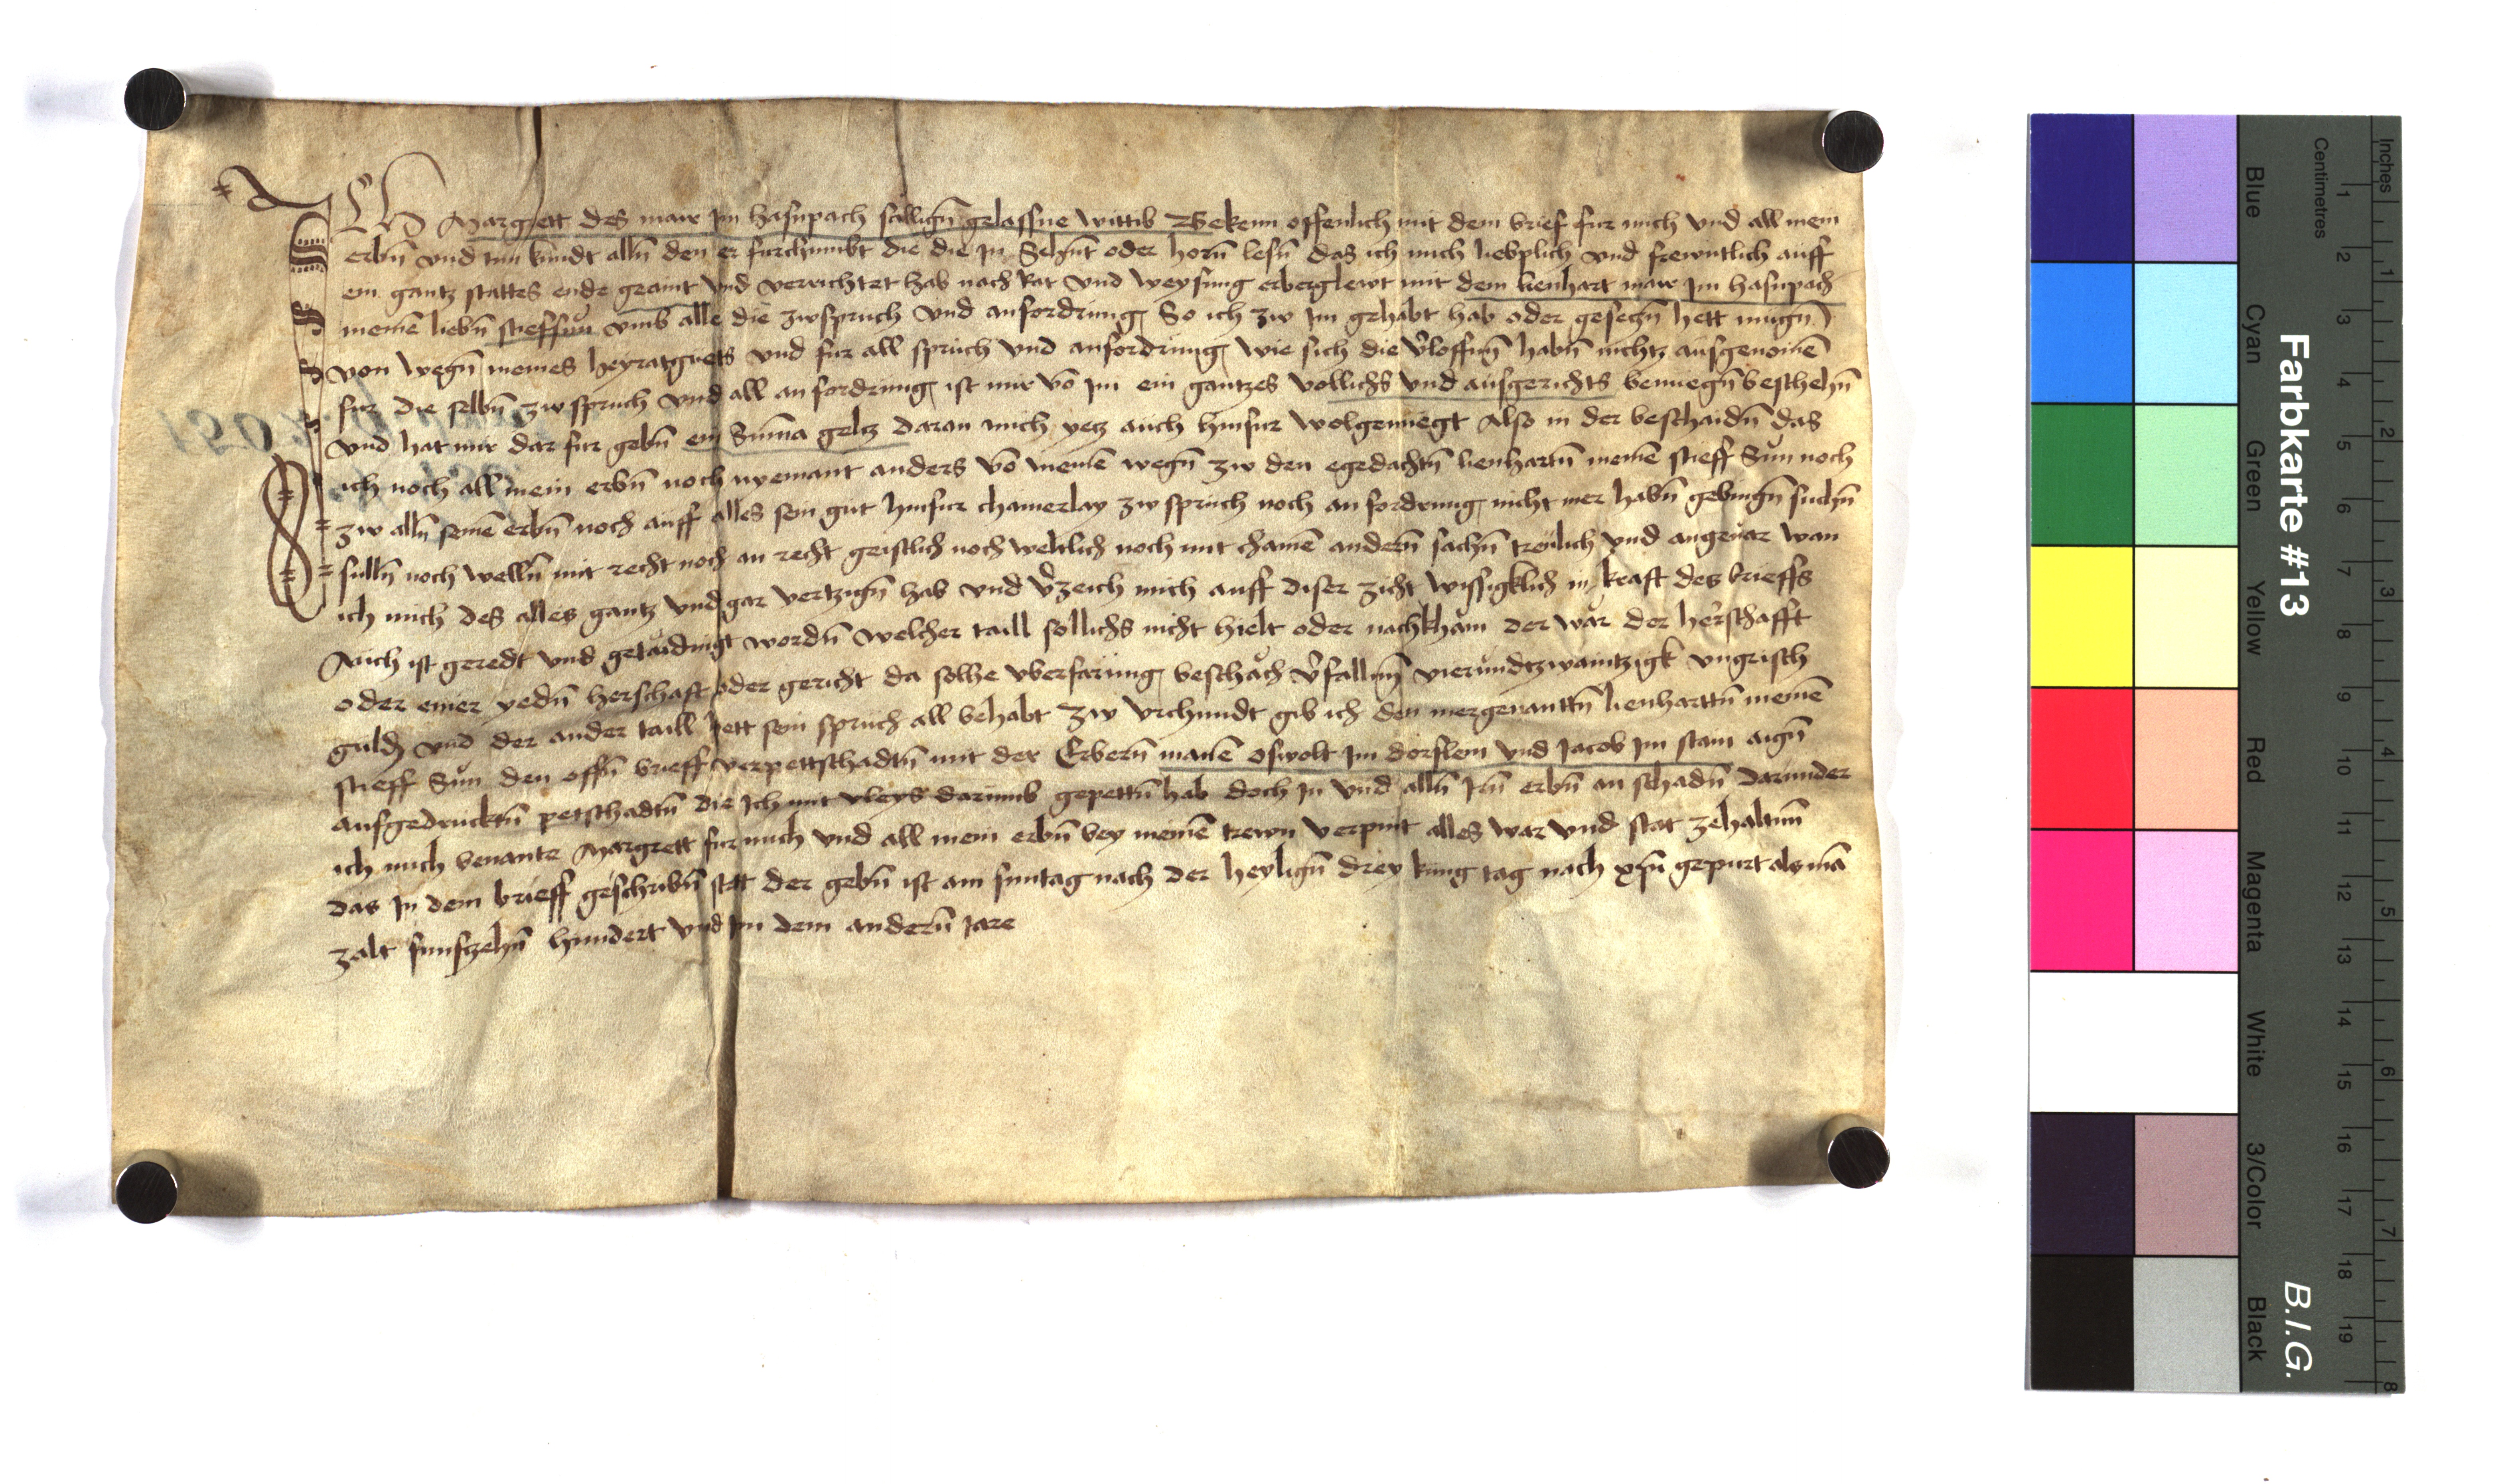 Ich Margrett des mair Im hasnpach sällign̄ gelassne wittib Bekenn offenlich mit dem brief fur mich vnd all mein
erbn̄ vnd tun kundt alln̄ den er furchumbt die die In Sehn̄t oder horn̄ lesn̄ das ich mich lieblich vnd frewntlich auff
ein gantz stattes ende geaint vnd verrichtet hab nach Rat vnd weysung erberglewt mit dem lienhart mair Im hasnpach
meinē liebn̄ stieffsun vmb alle die zwspruch vnd anfordrung So ich zw Im gehabt hab oder gesechn̄ hett mugn̄
von wegn̄ meines heyratguets vnd fur all spruch vnd anfordrung wie sich die v̄loffn̄ habn̄ nichtz ausgenomē
fur die selbn̄ zwspruch vnd all anfordrung ist mir vō Im ein gantzes vollichs vnd ausgerichts benuegn̄ beschehn̄
vnd hat mir dar fur gebn̄ ein Summa geltz daran mich yetz auch hinfur wolgenuegt Also in der beschaidn̄ das
ich noch all mein erbn̄ noch nyemant anders vō meinē wegn̄ zw den egedachtn̄ lienhartn̄ meinē stieff Sun noch
zw alln̄ seinē erbn̄ noch auff alles sein gut hinfur chainerlay zw spruch noch anfordrung nicht mer habn̄ gebingn̄ suchn̄
sulln̄ noch welln̄ mit recht noch an recht geistlich noch weltlich noch mit chainē andern̄ sachn̄ trewlich vnd angeuar wan
ich mich des alles gantz vnd gar vertzign̄ hab vnd v̄zeich mich auff diser zicht wissigklich in kraft des brieffs
Auch ist geredt vnd getaidingt wordn̄ welcher taill sollichs nicht hielt oder nachkham der war der herschafft
oder einer yedn̄ herschaft oder gericht da solhe vberfarung beschach v̄falln̄ vierundtzwaintzigk vngrisch
guldn̄ vnd der ander taill hett sein spruch all behabt Zw vrchundt gib ich den mergenanttn̄ lienharttn̄ meinē
stieff Sun den offn̄ brieff verpettschadtn̄ mit der Erbern̄ manē oswolt Im dorflein vnd Jacob Im stain aign̄
aufgedrucktn̄ petschadtn̄ die Ich mit vleys darumb gepettn̄ hab doch In vnd alln̄ Irn̄ erbn̄ an schadn̄ Darunder
ich mich benante Margrett fur mich vnd all mein erbn̄ bey meinē trewn verpint alles war vnd stat zehaltn̄
das In dem brieff geschribn̄ stet der gebn̄ ist am suntag nach der heylign̄ drey kung tag nach xp̄i gepurt als mā
zalt funfzehn̄ hundert vnd Im dem andern̄ Jare
Farbkarte #13
B.I.G.
Blue
Cyan
Green
Yellow
Red
Magenta
White
3/Color
Black
Centimetres
1 2 3 4 5 6 7 8 9 10 11 12 13 14 15 16 17 18 19
Inches
1 2 3 4 5 6 7 8